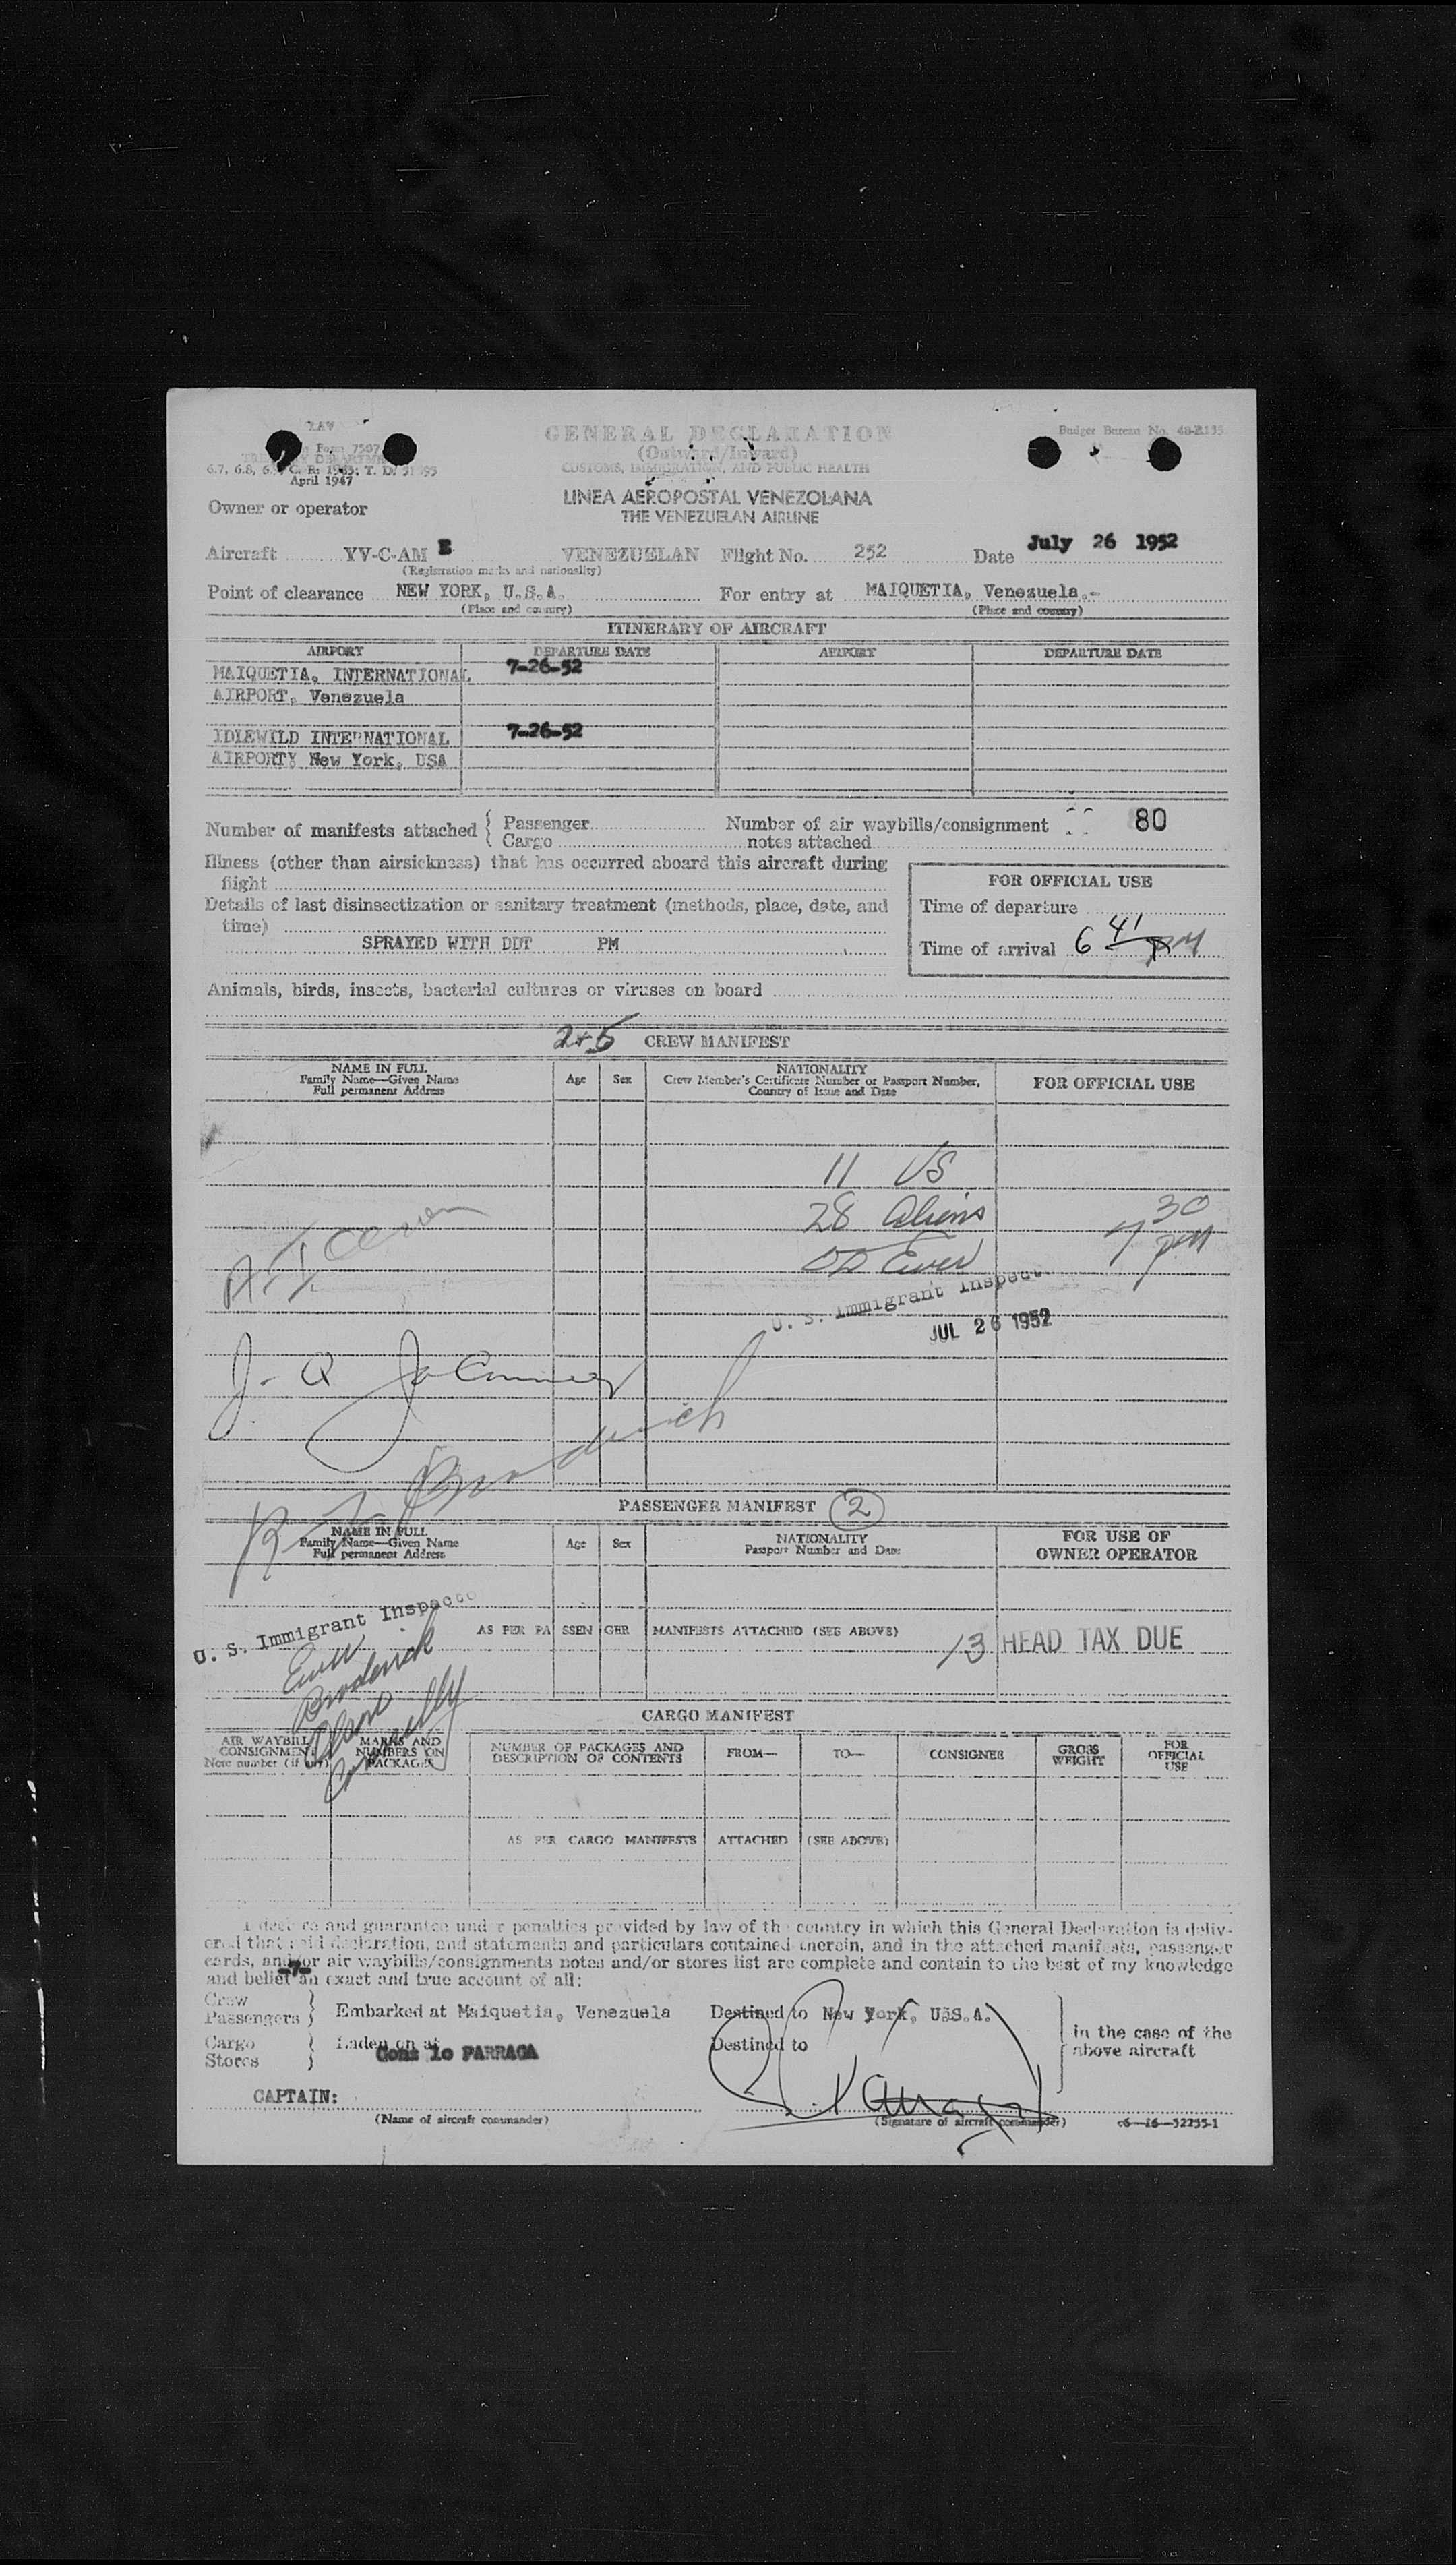 LAV
Form 7507
TREASURY DEPARTMENT
6.7, 6.8, C. R. 1945; T. D. 51395
April 1947
GENERAL DECLARATION
(Outward/Inward)
CUSTOMS, IMMIGRATION, AND PUBLIC HEALTH
Budget Bureau No. 48-R135.
LINEA AEROPOSTAL VENEZOLANA
THE VENEZUELAN AIRLINE
Owner or operator
Aircraft YV-C-AM E VENEZUELAN Flight No. 252 Date July 26 1952
(Registration marks and nationality)
Point of clearance NEW YORK, U.S.A. For entry at MAIQUETIA, Venezuela.-
(Place and country) (Place and country)
ITINERARY OF AIRCRAFT
AIRPORT DEPARTURE DATE AIRPORT DEPARTURE DATE
MAIQUETIA, INTERNATIONAL 7-26-52
AIRPORT, Venezuela
IDLEWILD INTERNATIONAL 7-26-52
AIRPORT; New York, USA
Number of manifests attached { Passenger Number of air waybills/consignment 80
Cargo notes attached
Illness (other than airsickness) that has occurred aboard this aircraft during
flight
FOR OFFICIAL USE
Details of last disinsectization or sanitary treatment (methods, place, date, and
time)
Time of departure
SPRAYED WITH DDT PM
Time of arrival 6 41 PM
Animals, birds, insects, bacterial cultures or viruses on board
2+5 CREW MANIFEST
NAME IN FULL
Family Name—Given Name
Full permanent Address
Age Sex
NATIONALITY
Crew Member's Certificate Number or Passport Number,
Country of Issue and Date
FOR OFFICIAL USE
11 US
28 Aliens
7 30 pm
Ewer
U. S. Immigrant Inspect
JUL 26 1952
J. Q.
Broderick
PASSENGER MANIFEST 2
NAME IN FULL
Family Name—Given Name
Full permanent Address
Age Sex
NATIONALITY
Passport Number and Date
FOR USE OF
OWNER OPERATOR
U. S. Immigrant Inspecto
AS PER PASSENGER MANIFESTS ATTACHED (SEE ABOVE) 13 HEAD TAX DUE
Ewer
Broderick
Connolly
CARGO MANIFEST
AIR WAYBILL
CONSIGNMENT
Note number (if any)
MARKS AND
NUMBERS ON
PACKAGES
NUMBER OF PACKAGES AND
DESCRIPTION OF CONTENTS
FROM— TO— CONSIGNEE
GROSS
WEIGHT
FOR
OFFICIAL
USE
AS PER CARGO MANIFESTS ATTACHED (SEE ABOVE)
I declare and guarantee under penalties provided by law of the country in which this General Declaration is deliv-
ered that said declaration, and statements and particulars contained therein, and in the attached manifests, passenger
cards, and/or air waybills/consignments notes and/or stores list are complete and contain to the best of my knowledge
and belief an exact and true account of all:
-7-
Crew
Passengers } Embarked at Maiquetia, Venezuela Destined to New York, U.S.A.
Cargo
Stores } Laden on at Destined to
in the case of the
above aircraft
Gonz lo PARRAGA
CAPTAIN:
(Name of aircraft commander) (Signature of aircraft commander) c6—16—52255-1